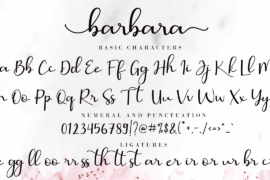 barbara
BASIC CHARACTERS
Aa Bb Cc Dd Ee Ff Gg Hh Ii Jj Kk Ll Mm
Nn Oo Pp Qq Rr Ss Tt Uu Vv Ww Xx Yy
NUMERAL AND PUNCTUATION
0123456789!?@#%$&
LIGATURES
gg ll oo rr ss th tt st ar er ir or ur br